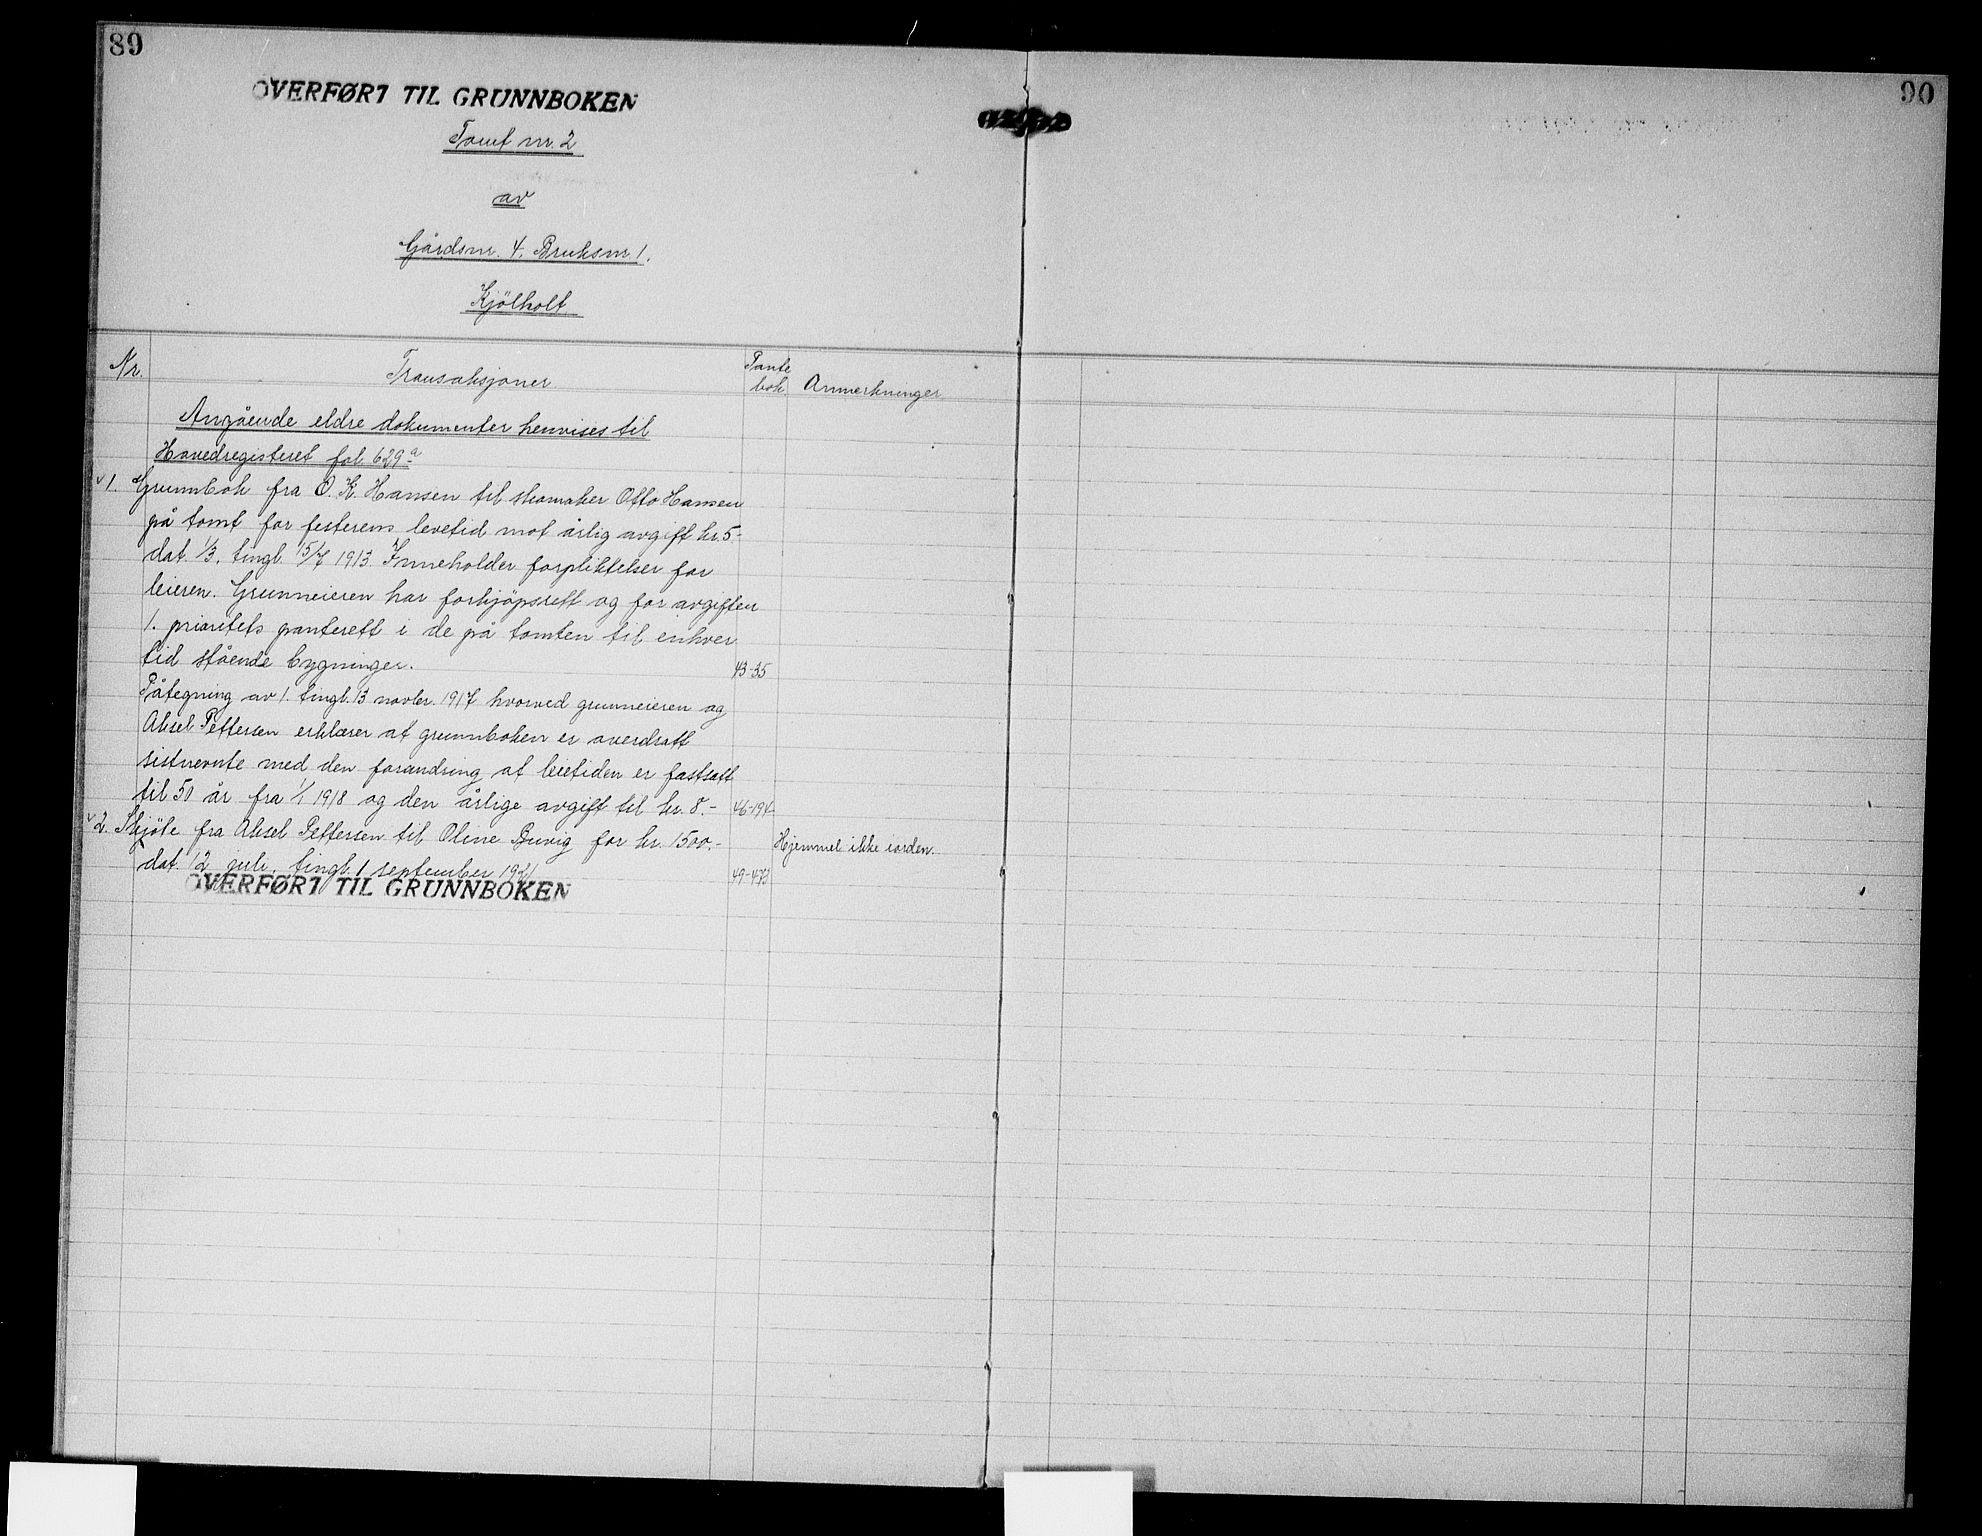 89
90
OVERFØRT TIL GRUNNBOKEN
Tomt nr. 2
av
Gårdsnr. 4. Bruksnr 1.
Kjölholt
Nr. Transaksjoner Pante bok. Anmerkninger
Angående eldre dokumenter henvises til
Hovedregisteret fol. 629a
1. Grunnbok fra O. K. Hansen til skomaker Otto Hansen
på tomt for festerens levetid mot årlig avgift kr. 5-
dat. 1/3, tingl. 15/7 1913. Inneholder forpliktelser for
leieren. Grunneieren har forkjøpsrett og for avgiften
1. prioritets panterett i de på tomten til enhver
tid stående bygninger. 43-35
Påtegning av 1. tingl. 13 novbr. 1917 hvorved grunneieren og
Aksel Pettersen erklærer at grunnboken er overdratt
sistnevnte med den forandring at leietiden er fastsatt
til 50 år fra 1/1 1918 og den årlige avgift til kr. 8.- 46-194
2. Skjöte fra Aksel Pettersen til Oline Buvig for kr. 1500.- Hjemmel ikke iorden.
dat. 12 juli, tingl. 1 september 1921 49-473
OVERFØRT TIL GRUNNBOKEN